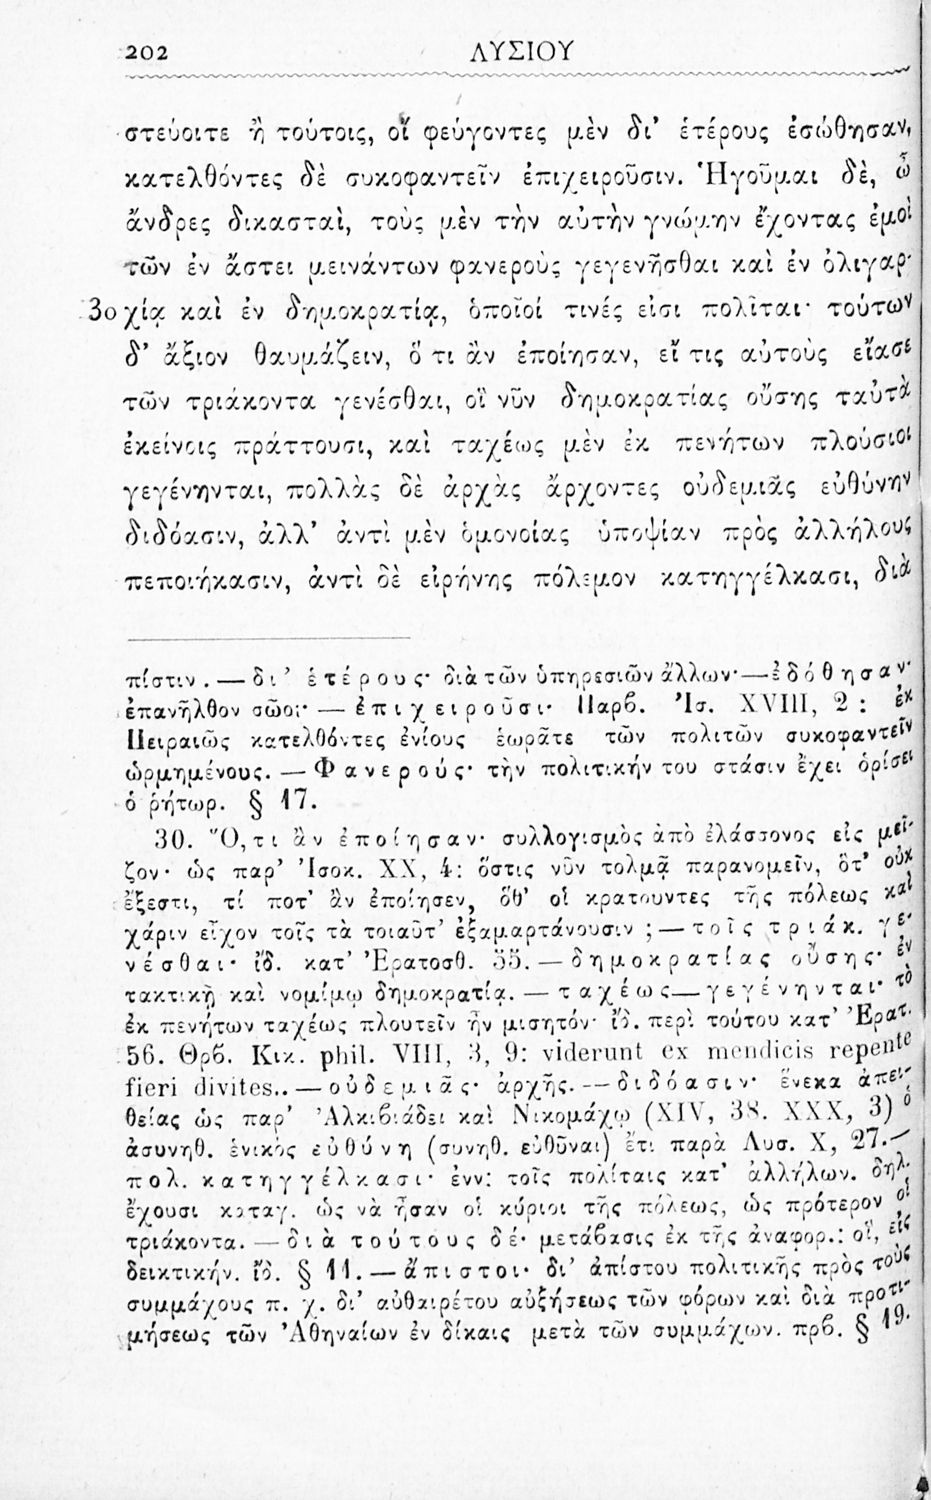 202 ΛΥΣΙΟΥ
στεύοιτε ἢ τούτοις, οἳ φεύγοντες μὲν δι’ ἑτέρους ἐσώθησαν,
κατελθόντες δὲ συκοφαντεῖν ἐπιχειροῦσιν. Ἡγοῦμαι δὲ, ὦ
ἄνδρες δικασταὶ, τοὺς μὲν τὴν αὐτὴν γνώμην ἔχοντας ἐμοὶ
τῶν ἐν ἄστει μεινάντων φανεροὺς γεγενῆσθαι καὶ ἐν ὀλιγαρ-
30 χίᾳ καὶ ἐν δημοκρατίᾳ, ὁποῖοί τινές εἰσι πολῖται· τούτων
δ’ ἄξιον θαυμάζειν, ὅ τι ἂν ἐποίησαν, εἴ τις αὐτοὺς εἴασε
τῶν τριάκοντα γενέσθαι, οἳ νῦν δημοκρατίας οὔσης ταὐτὰ
ἐκείνοις πράττουσι, καὶ ταχέως μὲν ἐκ πενήτων πλούσιοι
γεγένηνται, πολλὰς δὲ ἀρχὰς ἄρχοντες οὐδεμιᾶς εὐθύνην
διδόασιν, ἀλλ’ ἀντὶ μὲν ὁμονοίας ὑποψίαν πρὸς ἀλλήλους
πεποιήκασιν, ἀντὶ δὲ εἰρήνης πόλεμον κατηγγέλκασι, διὰ
πίστιν. — δι’ ἑτέρους· διὰ τῶν ὑπηρεσιῶν ἄλλων· — ἐδόθησαν·
ἐπανῆλθον σῶοι· — ἐπιχειροῦσι· Παρϐ. Ἰσ. XVIII, 2 : ἐκ
Πειραιῶς κατελθόντες ἐνίους ἑωρᾶτε τῶν πολιτῶν συκοφαντεῖν
ὡρμημένους. — Φανερούς· τὴν πολιτικήν του στάσιν ἔχει ὁρίσει
ὁ ῥήτωρ. § 17.
30. Ὅ,τι ἂν ἐποίησαν· συλλογισμὸς ἀπὸ ἐλάσσονος εἰς μεῖ-
ζον· ὡς παρ’ Ἰσοκ. XX, 4: ὅστις νῦν τολμᾷ παρανομεῖν, ὅτ’ οὐκ
ἔξεστι, τί ποτ’ ἂν ἐποίησεν, ὅθ’ οἱ κρατουντες τῆς πόλεως καὶ
χάριν εἶχον τοῖς τὰ τοιαῦτ’ ἐξαμαρτάνουσιν ; — τοῖς τριάκ. γε-
νέσθαι· ἴδ. κατ’ Ἐρατοσθ. 55. — δημοκρατίας οὔσης· ἐν
τακτικῇ καὶ νομίμῳ δημοκρατίᾳ. — ταχέως — γεγένηνται· τὸ
ἐκ πενήτων ταχέως πλουτεῖν ἦν μισητόν· ἴδ. περὶ τούτου κατ’ Ἐρατ.
56. Θρϐ. Κικ. phil. VIII, 3, 9: viderunt ex mendicis repente
fieri divites.. — οὐδεμιᾶς· ἀρχῆς. — διδόασιν· ἕνεκα ἀπει-
θείας ὡς παρ’ Ἀλκιϐιάδει καὶ Νικομάχῳ (XIV, 38. XXX, 3) ὁ
ἀσυνηθ. ἑνικὸς εὐθύνη (συνηθ. εὐθῦναι) ἔτι παρὰ Λυσ. X, 27. —
πολ. κατηγγέλκασι· ἐνν: τοῖς πολίταις κατ’ ἀλλήλων. δηλ.
ἔχουσι καταγ. ὡς νὰ ἦσαν οἱ κύριοι τῆς πόλεως, ὡς πρότερον οἱ
τριάκοντα. — διὰ τούτους δέ· μετάϐασις ἐκ τῆς ἀναφορ.: οἵ, εἰς
δεικτικήν. ἴδ. § 11. — ἄπιστοι· δι’ ἀπίστου πολιτικῆς πρὸς τοὺς
συμμάχους π. χ. δι’ αὐθαιρέτου αὐξήσεως τῶν φόρων καὶ διὰ προτι-
μήσεως τῶν Ἀθηναίων ἐν δίκαις μετὰ τῶν συμμάχων. πρϐ. § 19.